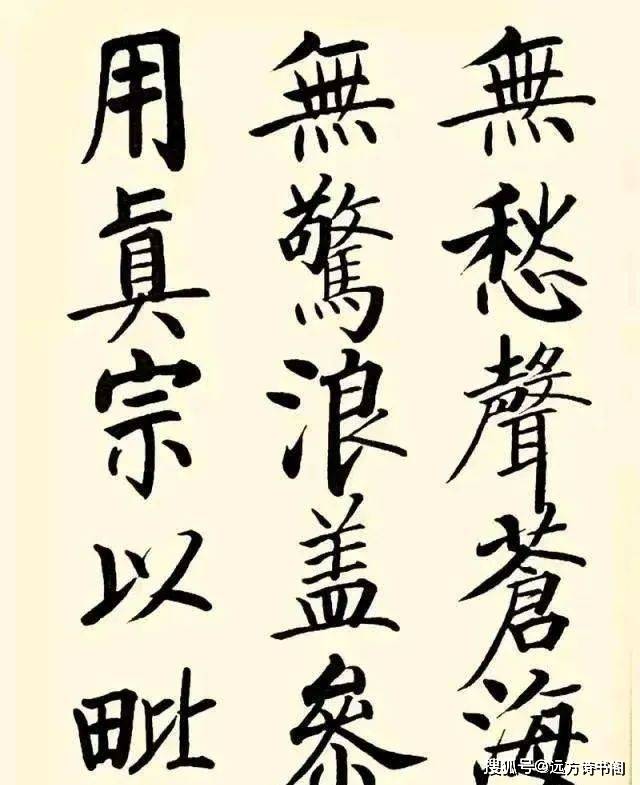 無愁聲蒼海
無驚浪盖參
用眞宗以毗
搜狐号@远方诗书阁